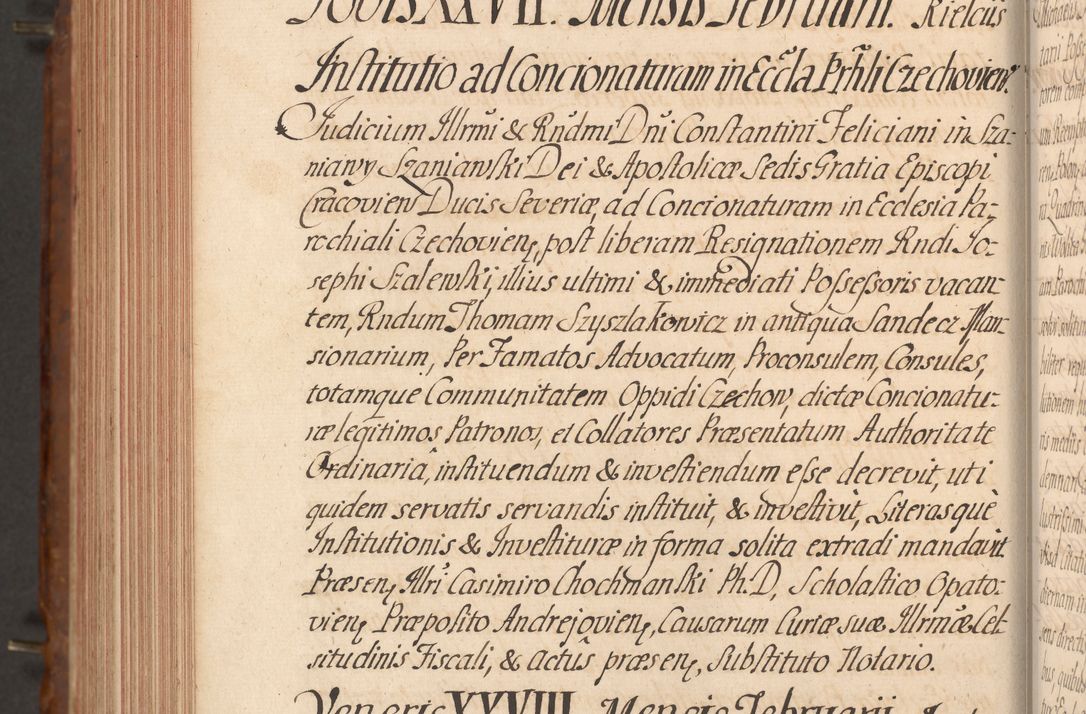 Jovis XXVII. Mensis Februarii. Kielciis
Institutio ad Concionaturam in Eccla Prhli Czechovien.
Judicium Illrmi & Rndmi Dni Constantini Feliciani in Sza-
niawy Szaniawski Dei & Apostolicæ Sedis Gratia Episcopi
Cracovien Ducis Severiæ, ad Concionaturam in Ecclesia Pa-
rochiali Czechovien, post liberam Resignationem Rndi Jo-
sephi Szalewski, illius ultimi & immediati Possessoris vacan-
tem, Rndum Thomam Szyszlakowicz in antiqua Sandecz Man-
sionarium, Per Famatos Advocatum, Proconsulem, Consules,
totamque Communitatem Oppidi Czechow, dictæ Concionatu-
ræ legitimos Patronos, et Collatores Præsentatum Authoritate
Ordinaria, instituendum & investiendum esse decrevit, uti
quidem servatis servandis instituit, & investivit, Literasque
Institutionis & Investituræ in forma solita extradi mandavit.
Præsen, Illri Casimiro Chochmanski Ph. D, Scholastico Opato-
vien, Præposito Andrejovien, Causarum Curiæ suæ Illrmæ Cel-
situdinis Fiscali, & actus præsen, Substituto Notario.
Veneris XXVIII. Mensis Februarii.